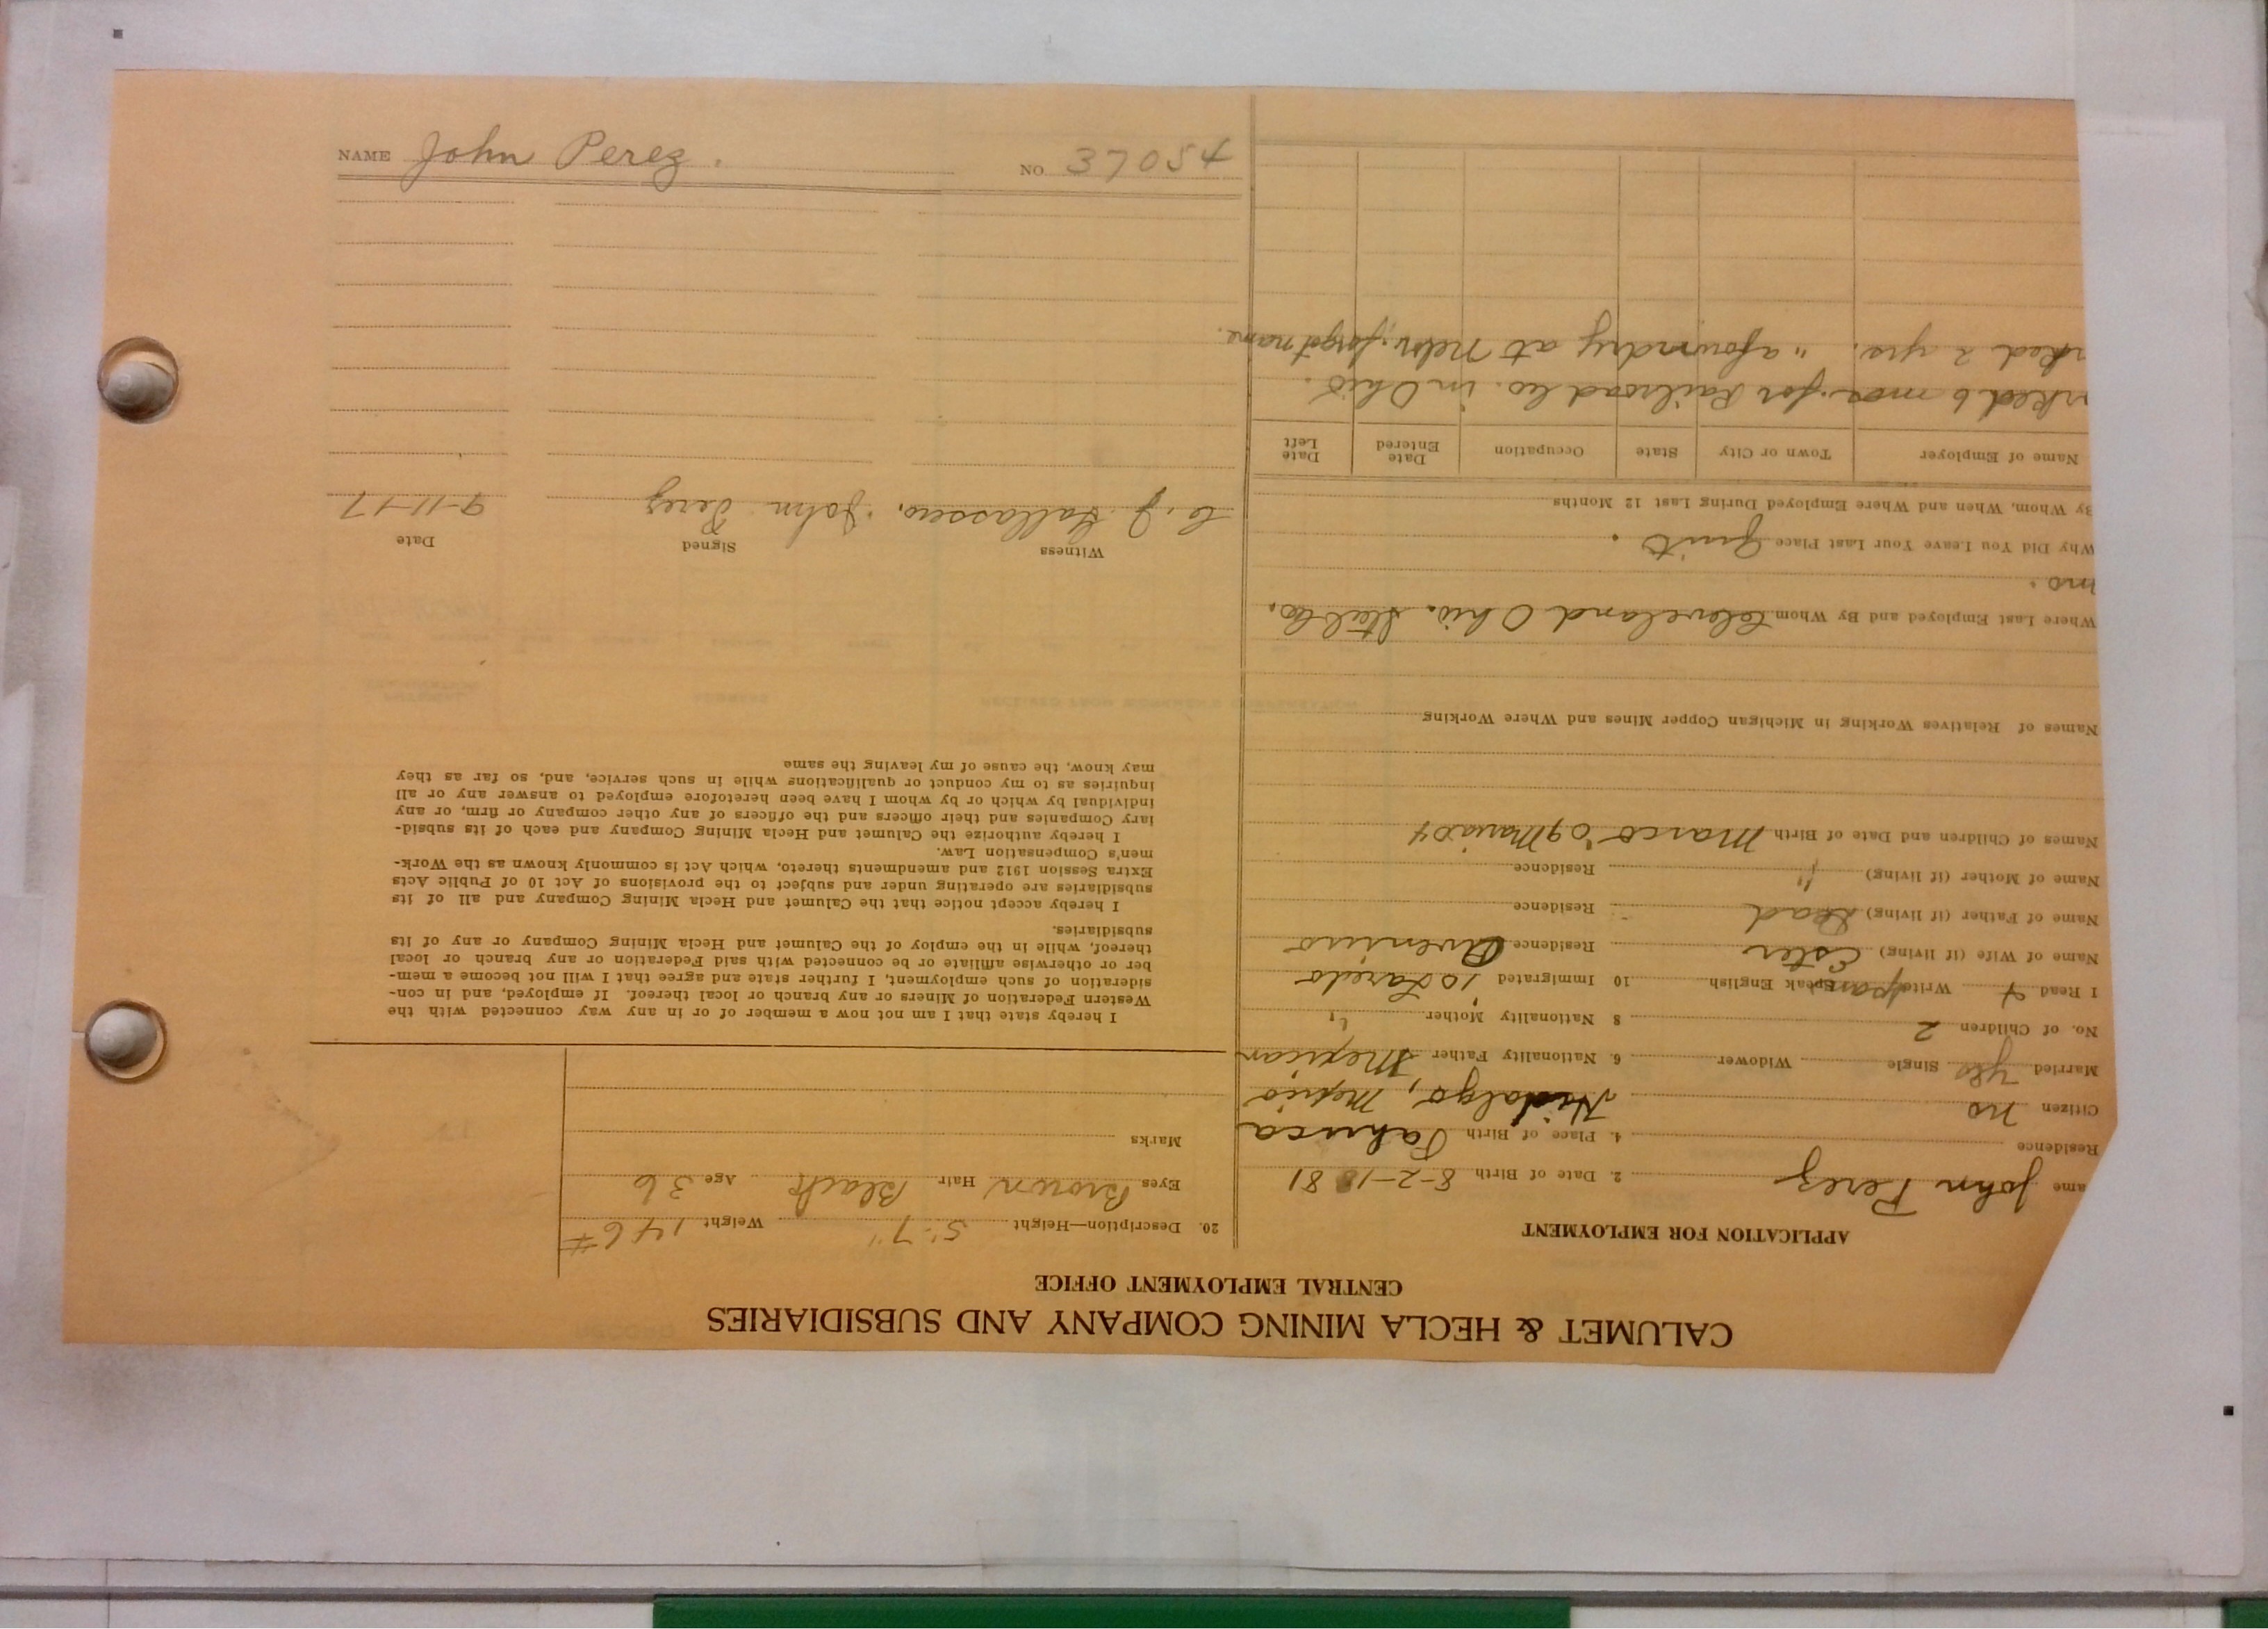 NAME John Perez. NO. 37054
CALUMET & HECLA MINING COMPANY AND SUBSIDIARIES
CENTRAL EMPLOYMENT OFFICE
APPLICATION FOR EMPLOYMENT
ame John Perez 2. Date of Birth 8-2-1881
Residence 4. Place of Birth Pahuca
Citizen no Hidalgo, Mexico
Married yes Single Widower 6. Nationality Father Mexican
No. of Children 2 8 Nationality Mother "
I Read Write Speak English 10 Immigrated Laredo
Name of Wife (if living) Ester Residence
Name of Father (if living) Dead Residence
Name of Mother (if living) " Residence
Names of Children and Date of Birth Marco 09 Maria 04
Names of Relatives Working in Michigan Copper Mines and Where Working
Where Last Employed and By Whom Cleveland Ohio. Steel Co.
Why Did You Leave Your Last Place Quit.
By Whom, When and Where Employed During Last 12 Months
Name of Employer Town or City State Occupation Date Entered Date Left
rked 6 mos. for Railroad Co. in Ohio.
rked 2 yrs. " a foundry at Nebr. forgot name.
20. Description—Height 5'-7" Weight 146#
Eyes Brown Hair Black Age 36
Marks
I hereby state that I am not now a member of or in any way connected with the
Western Federation of Miners or any branch or local thereof. If employed, and in con-
sideration of such employment, I further state and agree that I will not become a mem-
ber or otherwise affiliate or be connected with said Federation or any branch or local
thereof, while in the employ of the Calumet and Hecla Mining Company or any of its
subsidiaries.
I hereby accept notice that the Calumet and Hecla Mining Company and all of its
subsidiaries are operating under and subject to the provisions of Act 10 of Public Acts
Extra Session 1912 and amendments thereto, which Act is commonly known as the Work-
men's Compensation Law.
I hereby authorize the Calumet and Hecla Mining Company and each of its subsid-
iary Companies and their officers and the officers of any other company or firm, or any
individual by which or by whom I have been heretofore employed to answer any or all
inquiries as to my conduct or qualifications while in such service, and, so far as they
may know, the cause of my leaving the same
Witness Signed Date
C. J. John Perez 9-11-17